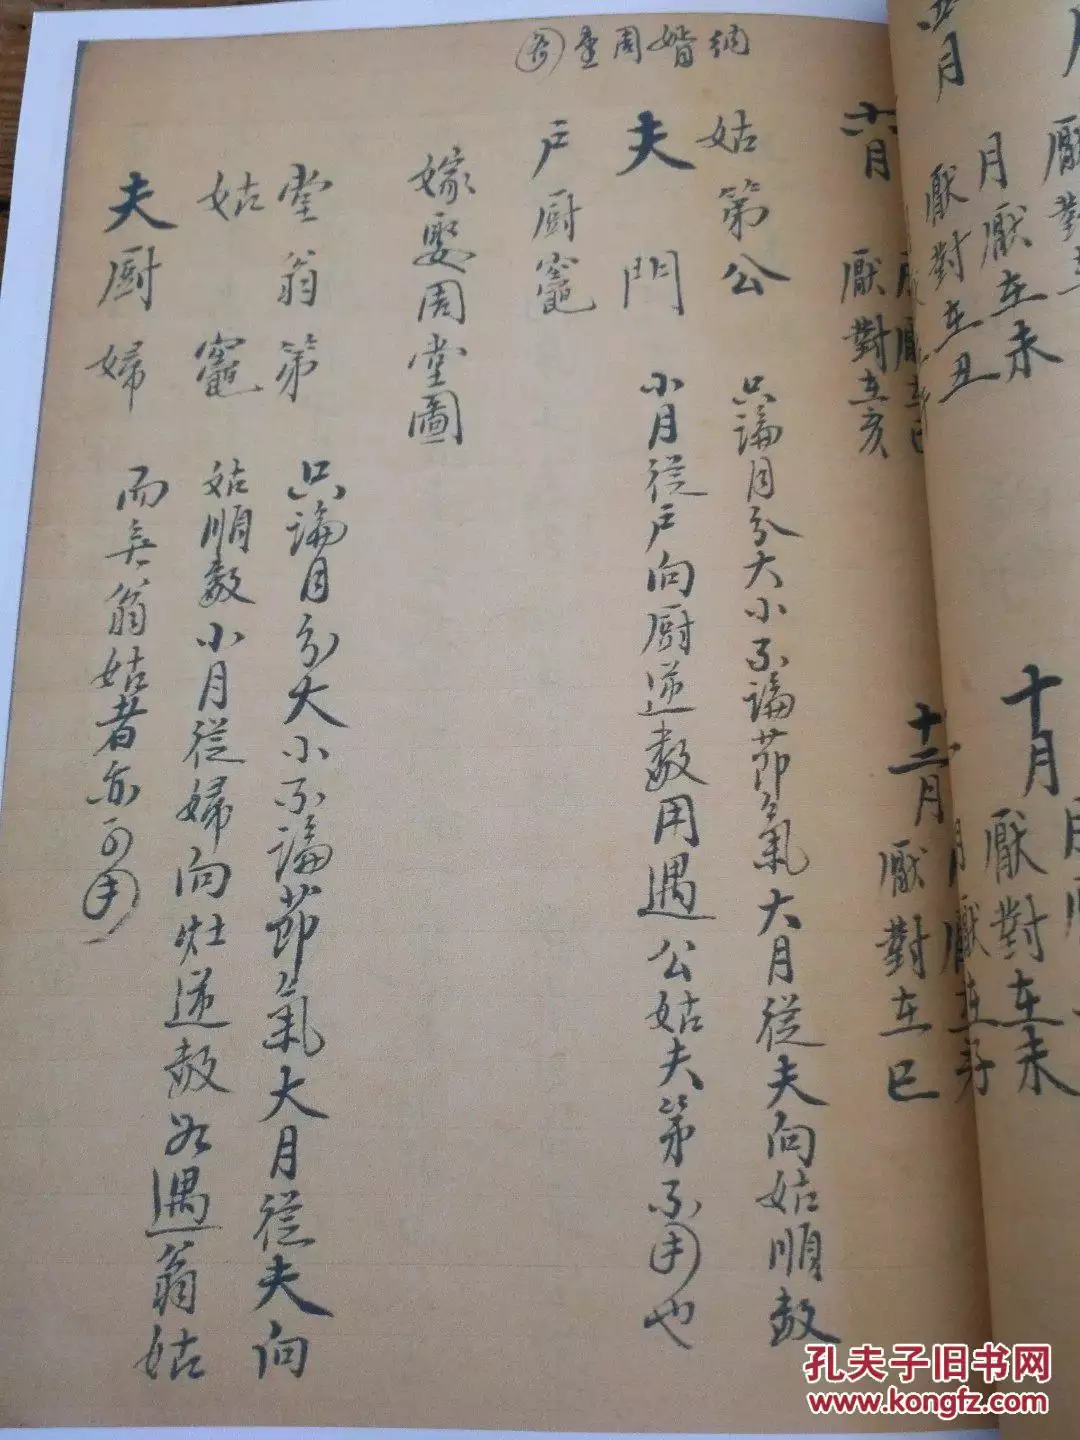 月
月厭在未
厭對在丑
十月
厭對在未
六月
厭對在亥
十二月
厭對在巳
納婿周堂
姑第公
夫 門
戶厨竈
只論月分大小不論節氣大月從夫向姑順數
小月從戶向厨逆數用遇公姑夫第不用也
嫁娶周堂圖
堂翁第
姑 竈
夫厨婦
只論月分大小不論節氣大月從夫向
姑順數小月從婦向灶逆數如遇翁姑
而無翁姑者亦可用
孔夫子旧书网
www.kongfz.com